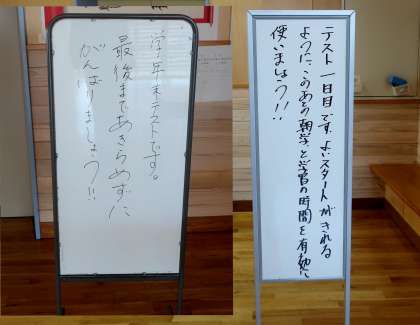 学年末テストです。
最後まであきらめずに
がんばりましょう!!
テスト一日目です。よいスタートがきれる
ように、このあとの朝学と学習の時間を有効に
使いましょう!!